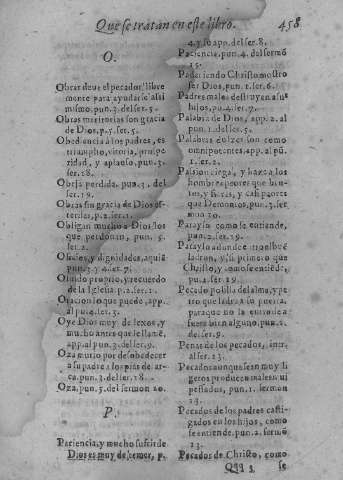 Que se tratan en este libro. 458
O.
Obrar deue el pecador, libre
mente para ayudarse assi
mismo. pun. 3. del ser. 5.
Obras meritorias son gracia
de Dios, p. 5. ser. 5.
Obediencia à los padres, es
triumpho, vitoria, prosperidad,
y aplauso, pun. 3.
ser. 18.
Oueja perdida. pun. 3. del
ser. 19.
Obras sin gracia de Dios esteriles,
p. 2. ser. 1.
Obligan mucho a Dios los
que perdonan, pun. 5.
ser. 2.
Oficios, y dignidades, aquiã
pun. 3. y 4. ser. 7.
Oluido proprio, y recuerdo
de la Iglesia. p. 1. ser. 1.
Oracion lo que puede, app.
al pu. 4. ser. 3.
Oye Dios muy de lexos, y
mucho antes que le llamẽ,
app. al pun. 3. del ser. 9.
Oza murio por desobedecer
a su padre a los pies de arca.
pun. 3. del ser. 18.
Oza, pun. 5. del sermon 20.
P.
Paciencia, y mucho sufrir de
Dios es muy de temer, p.
4. y su app. del ser. 8.
Paciencia, pun. 4. del sermõ
15.
Padeciendo Christo mostro
ser Dios, pun. 1. ser. 6.
Padres malos destruyen a sus
hijos, pu. 4. ser. 9.
Palabra de Dios, app. 2. al
pun. 1. del ser. 5.
Palabras dulces son como
omnipotentes, app. al pũ.
1. ser. 2.
Passion ciega, y haze a los
hombres peores que brutos,
y fieras, y casi peores
que Demonios, pun. 3. sermon
10.
Parayso como se entiende,
pun. 2. ser. 19.
Parayso adonde el noel bué
ladron, y si primero que
Christo, y como se entiéde,
pu. 1. ser. 19
Pecado polilla del alma, y perro
que ladra a su puerta,
paraque no la entre de a
fuera bien alguno. pun. 2.
del ser. 9.
Penas de los pecados, intr.
al ser. 13.
Pecados aunque sean muy ligeros
producen males muy
pesados, pun. 1. sermon
13.
Pecados de los padres castigados
en los hijos, como
se entiende. pun. 2. sermõ
13.
Pecados de Christo, como
Qqq 3 se